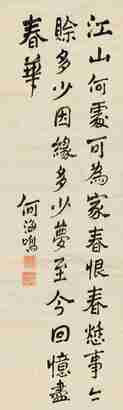 江山何處可為家春恨春愁事々
賒多少因緣多少夢至今回憶盡
春華
何海鳴